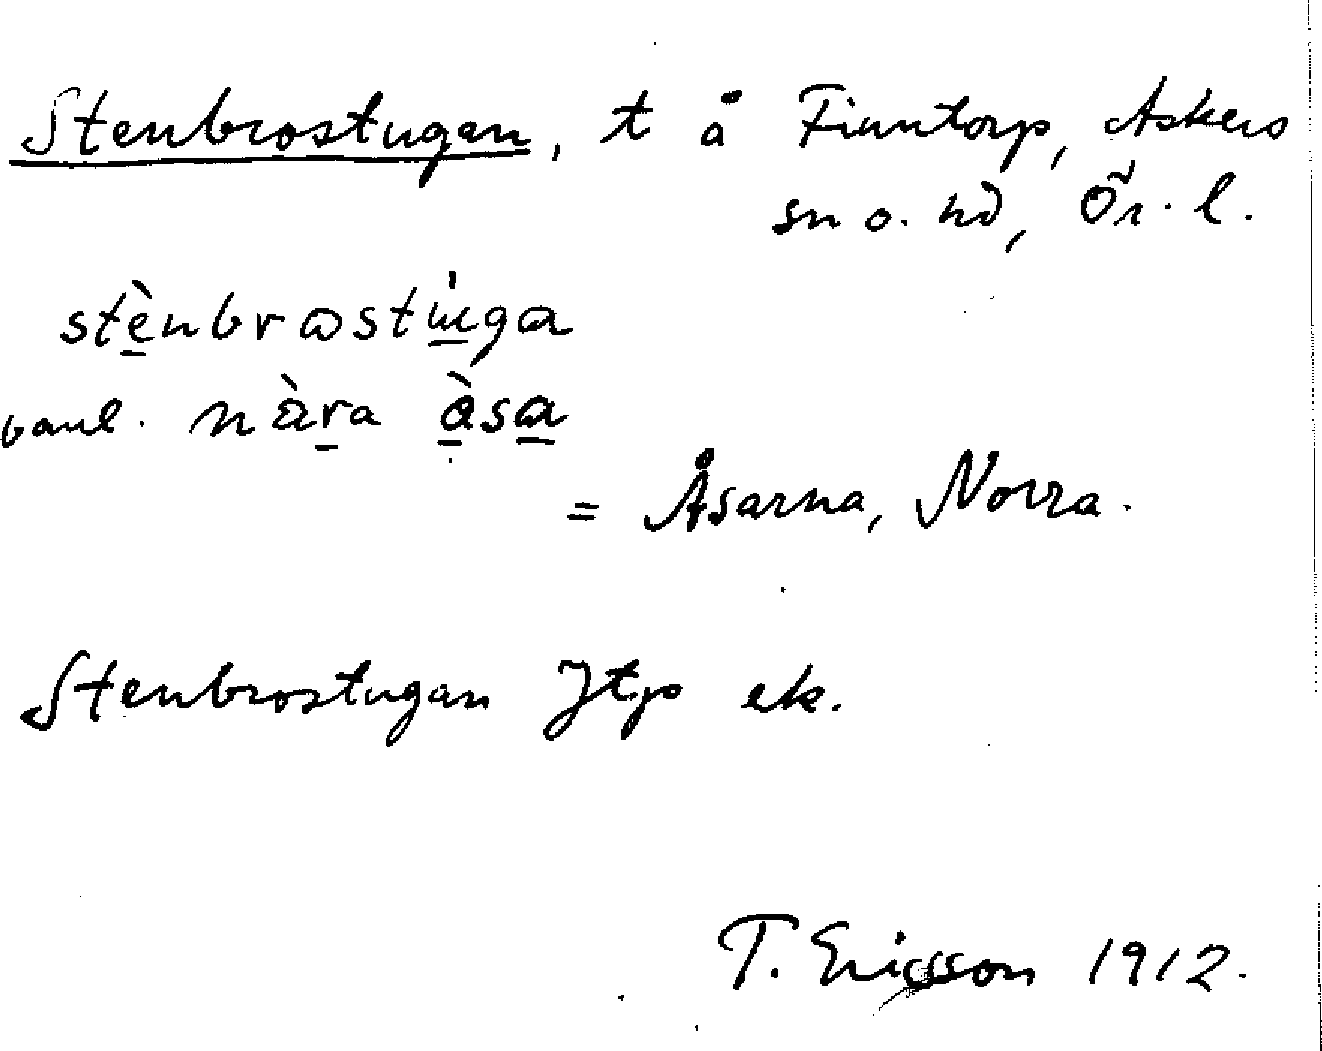 Stenbrostugan, t å Finntorp, Askers
sn o. hd, Ör. l.
stènbrostúga
vanl. nàra àsa
= Åsarna, Norra.
Stenbrostugan Jtp ek.
T. Ericsson 1912.